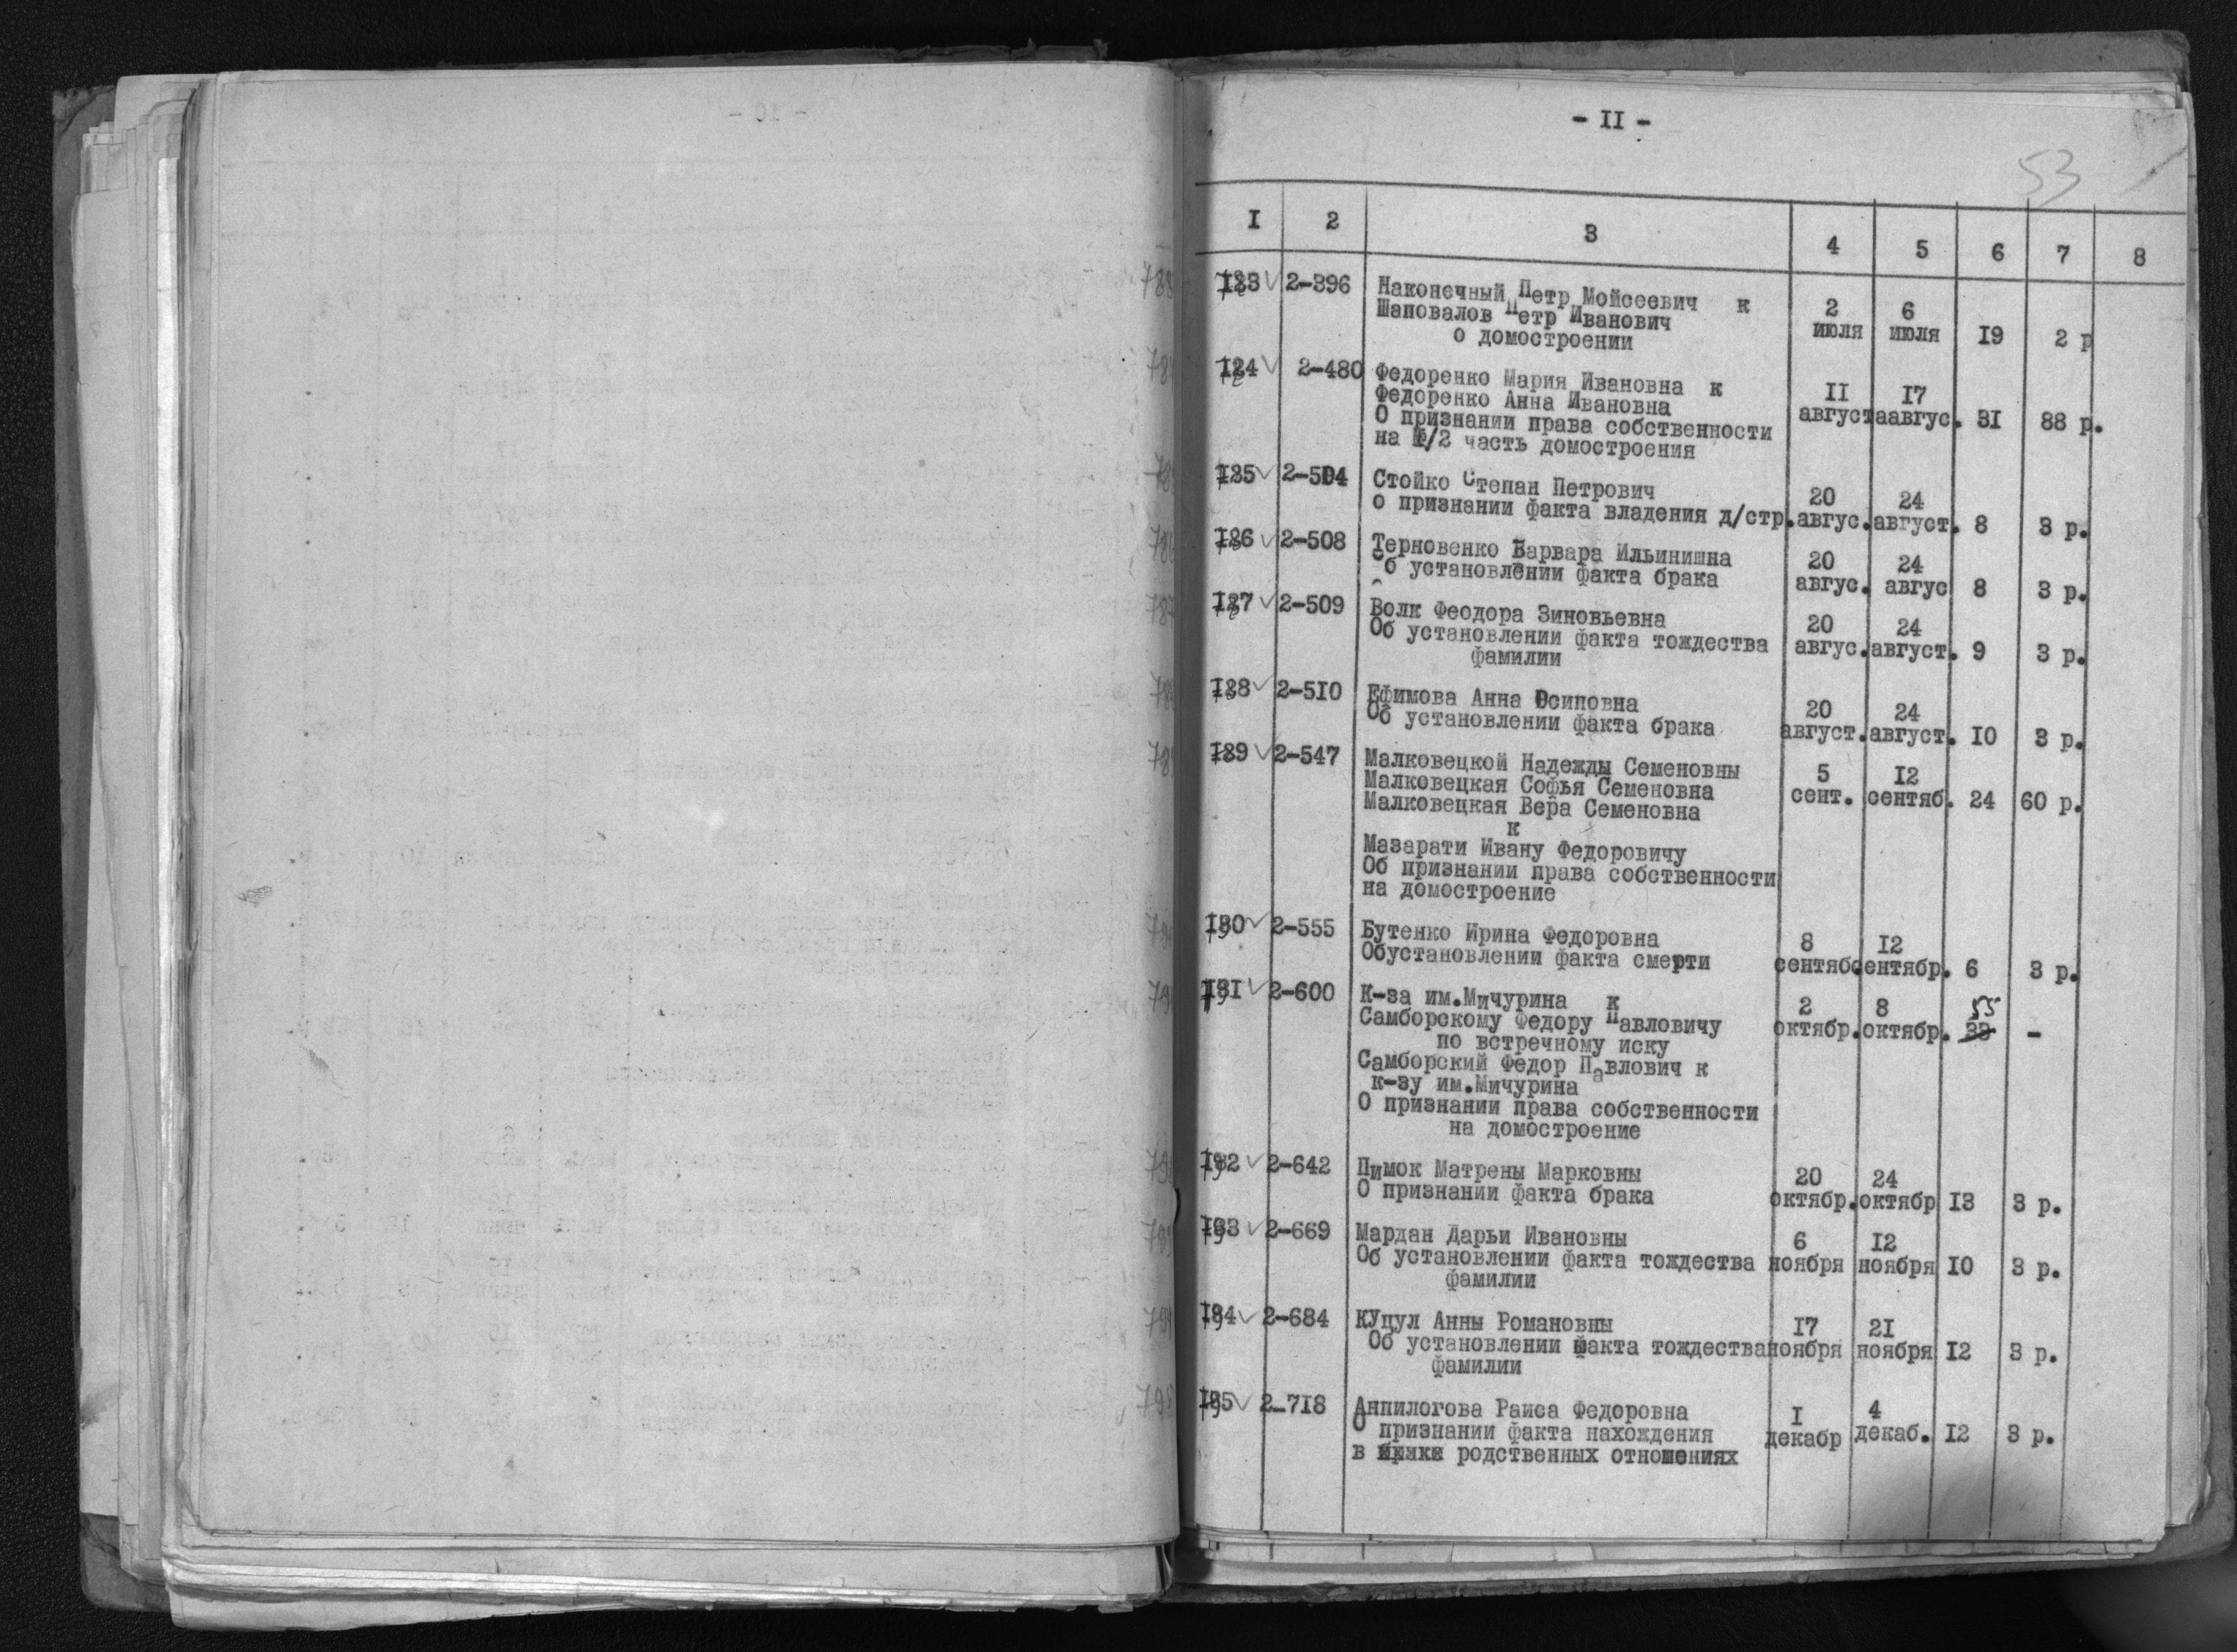 - II -
53
I 2 3 4 5 6 7 8
783 2-396 Наконечный Петр Мойсеевич к
Шаповалов Петр Иванович 2 6
о домостроении июля июля 19 2 р
784 2-480 Федоренко Мария Ивановна к
Федоренко Анна Ивановна II I7
О признании права собственности августа авгус. 3I 88 р.
на I/2 часть домостроения
785 2-504 Стойко Степан Петрович 20 24
о признании факта владения д/стр. авгус. август. 8 3 р.
786 2-508 Терновенко Варвара Ильинишна 20 24
об установлении факта брака авгус. авгус 8 3 р.
787 2-509 Волк Феодора Зиновьевна 20 24
Об установлении факта тождества авгус. август. 9 3 р.
фамилии
788 2-5I0 Ефимова Анна Осиповна 20 24
Об установлении факта брака август. август. I0 3 р.
789 2-547 Малковецкой Надежды Семеновны 5 I2
Малковецкая Софья Семеновна сент. сентяб. 24 60 р.
Малковецкая Вера Семеновна
к
Мазарати Ивану Федоровичу
Об признании права собственности
на домостроение
790 2-555 Бутенко Ирина Федоровна 8 I2
Обустановлении факта смерти сентяб сентябр. 6 3 р.
791 2-600 К-за им.Мичурина к 2 8 55
Самборскому Федору Павловичу октябр. октябр. 33 -
по встречному иску
Самборский Федор Павлович к
к-зу им.Мичурина
О признании права собственности
на домостроение
792 2-642 Пимок Матрены Марковны 20 24
О признании факта брака октябр. октябр I3 3 р.
793 2-669 Мардан Дарьи Ивановны 6 I2
Об установлении факта тождества ноября ноября I0 3 р.
фамилии
794 2-684 КУцул Анны Романовны I7 2I
Об установлении факта тождества ноября ноября I2 3 р.
фамилии
795 2-7I8 Анпилогова Раиса Федоровна I 4
О признании факта нахождения декабр декаб. I2 3 р.
в родственных отношениях